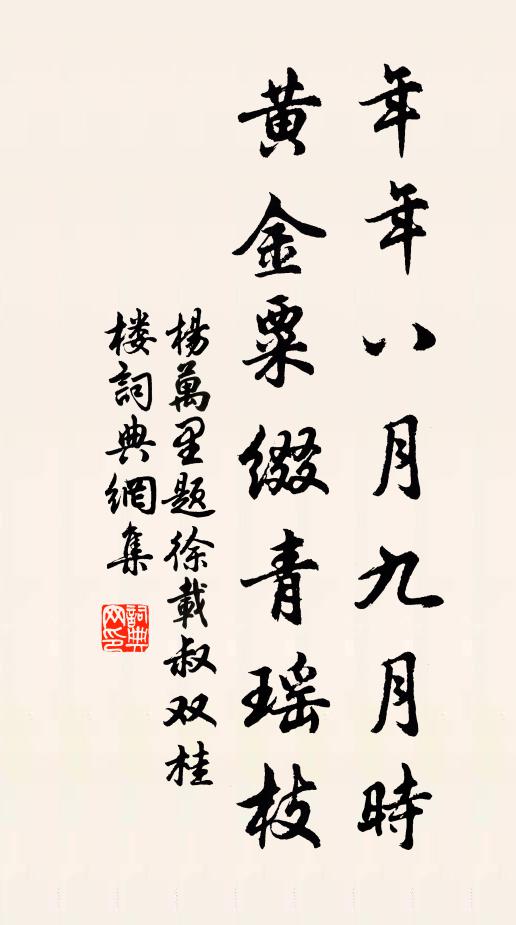 年年八月九月時
黃金粟綴青瑤枝
楊萬里题徐載叔双桂
楼詞典網集
詞典网印